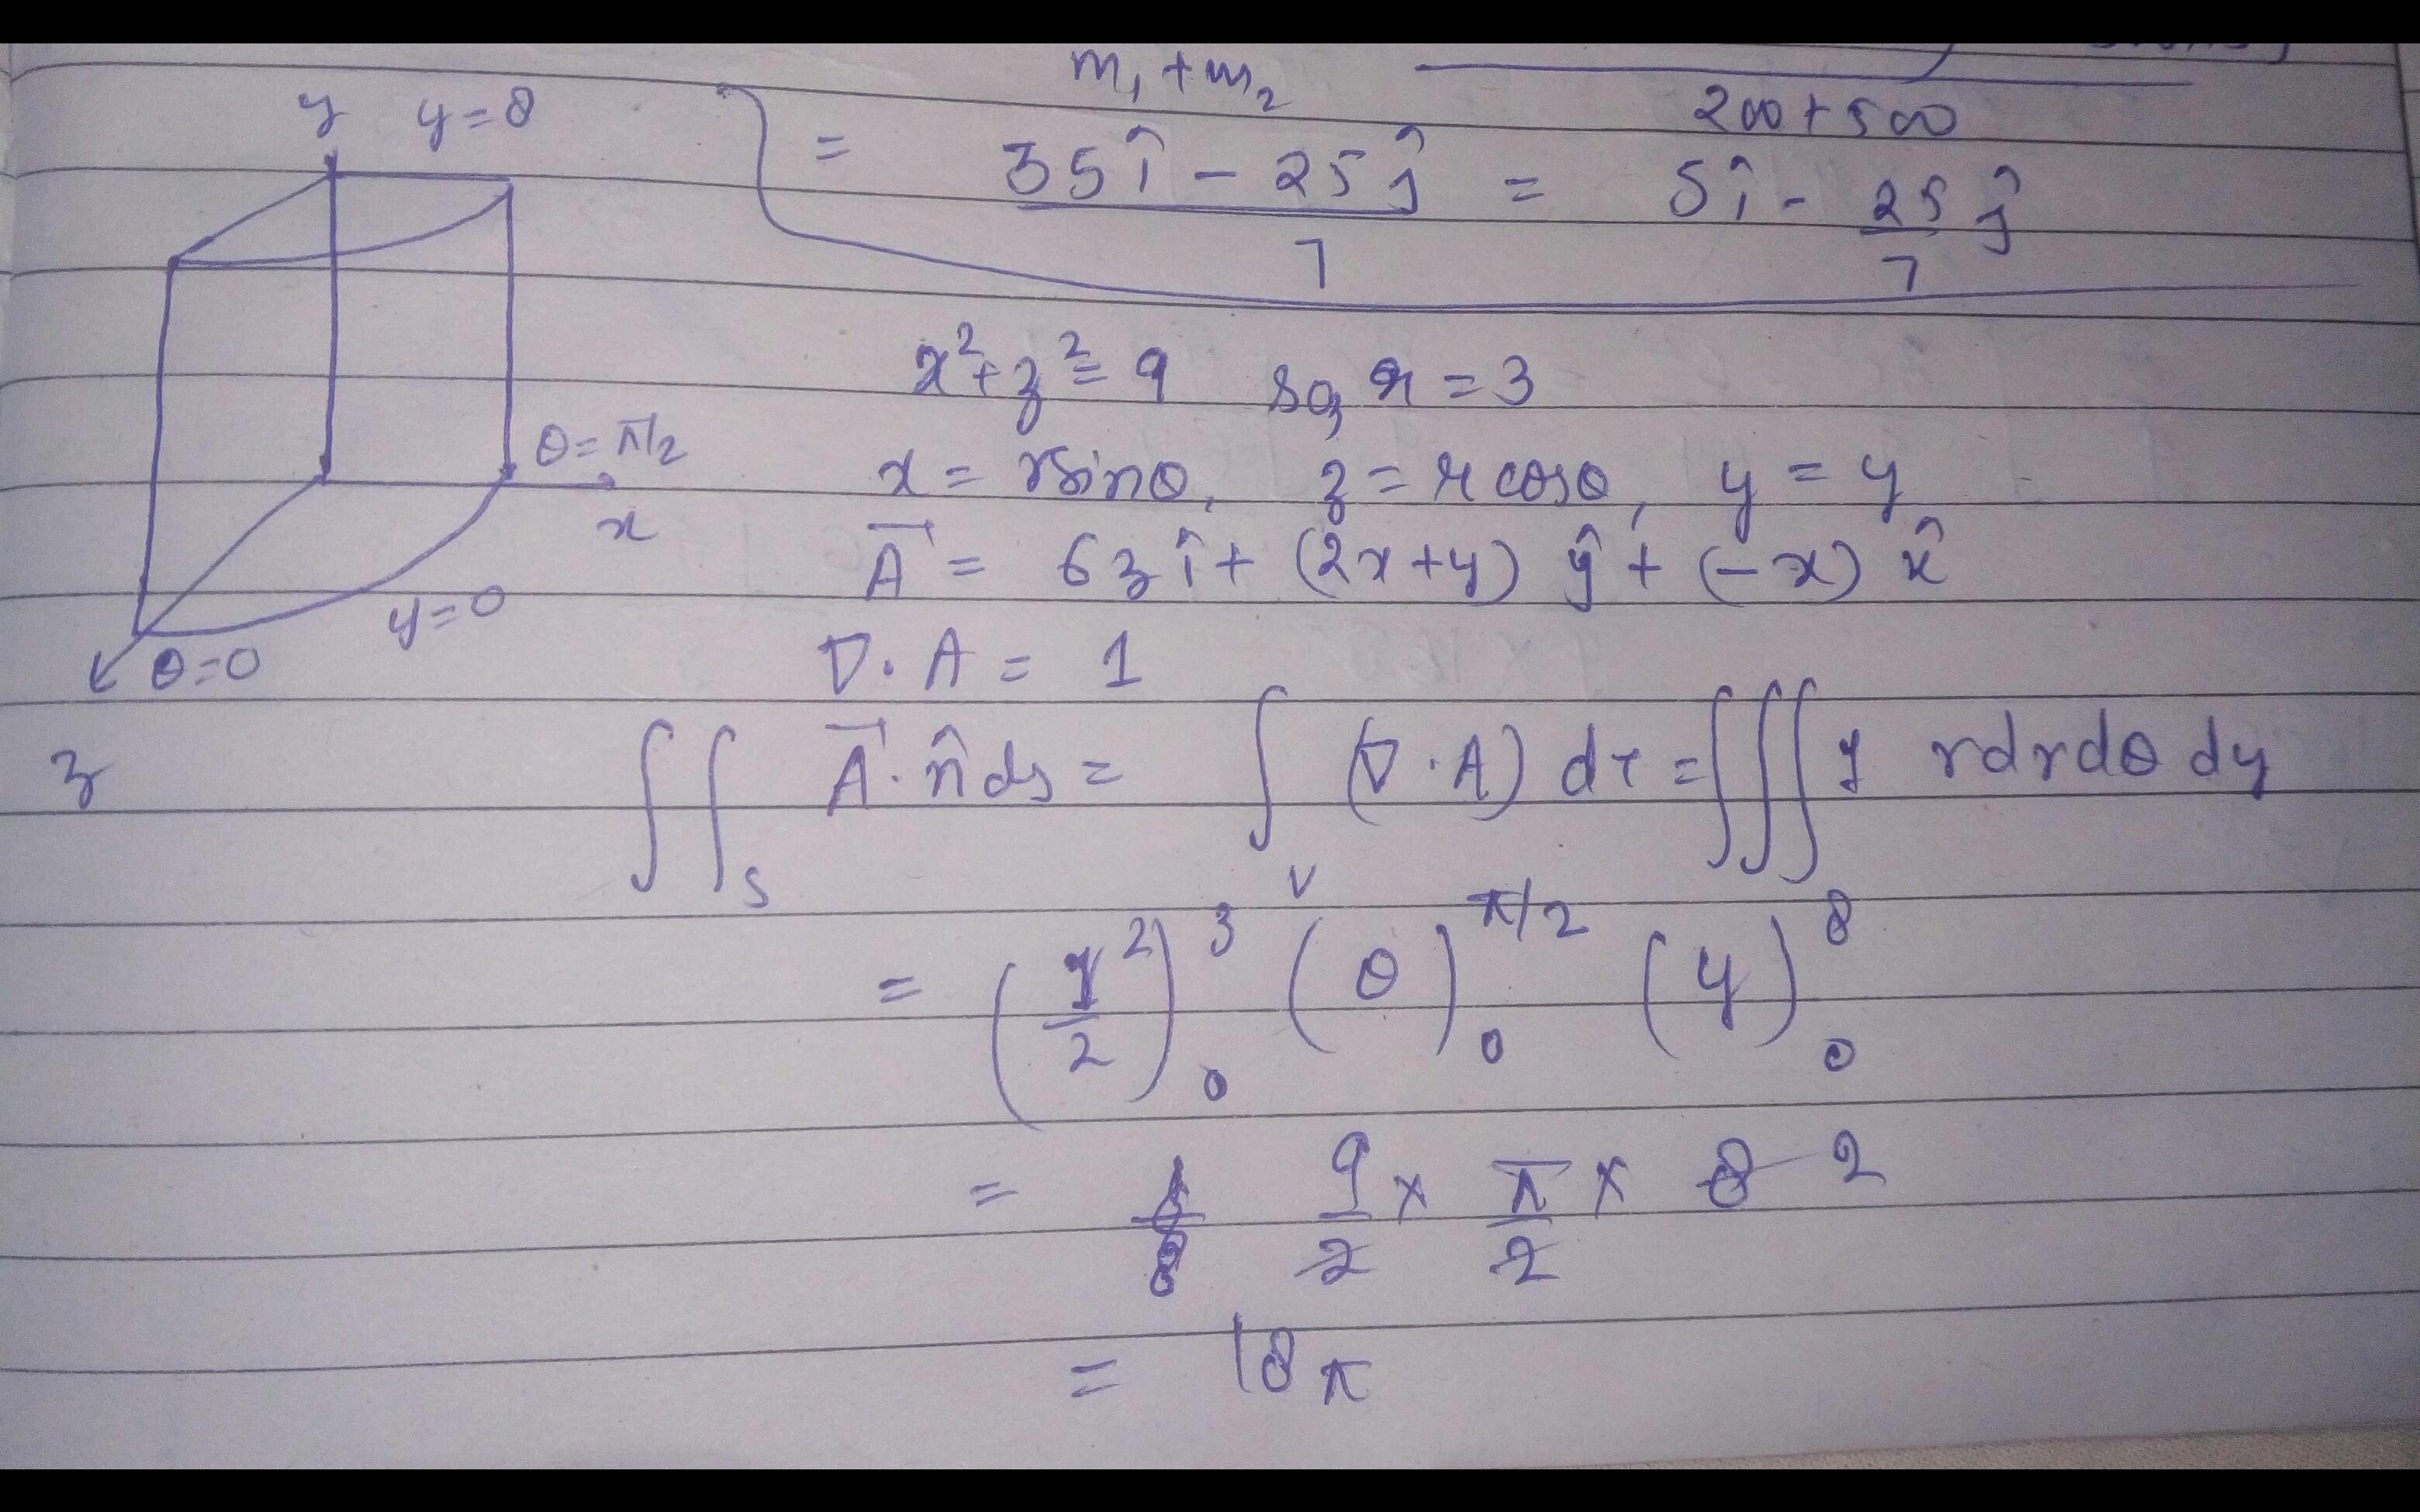 m₁ + m₂
200 + 500
= (35î - 25ĵ)/7 = 5î - 25/7 ĵ
y y = 8
θ = π/2
x
y = 0
θ = 0
z
x² + z² = 9 so, r = 3
x = r sinθ, z = r cosθ, y = y
A⃗ = 6z î + (2x + y) ŷ + (-x) x̂
∇ · A = 1
∬_S A⃗ · n̂ ds = ∫_V (∇ · A) dτ = ∭ 1 r dr dθ dy
= (r²/2)₀³ (θ)₀^{π/2} (y)₀⁸
= 9/2 × π/2 × 8 2
= 18π